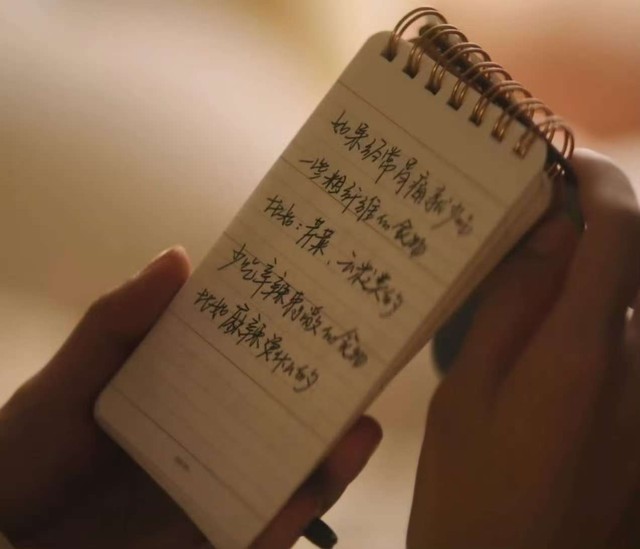 如果经常胃痛就少吃
一些粗纤维的食物
比如:芹菜、之类的
少吃辛辣刺激的食物
比如麻辣烫什么的